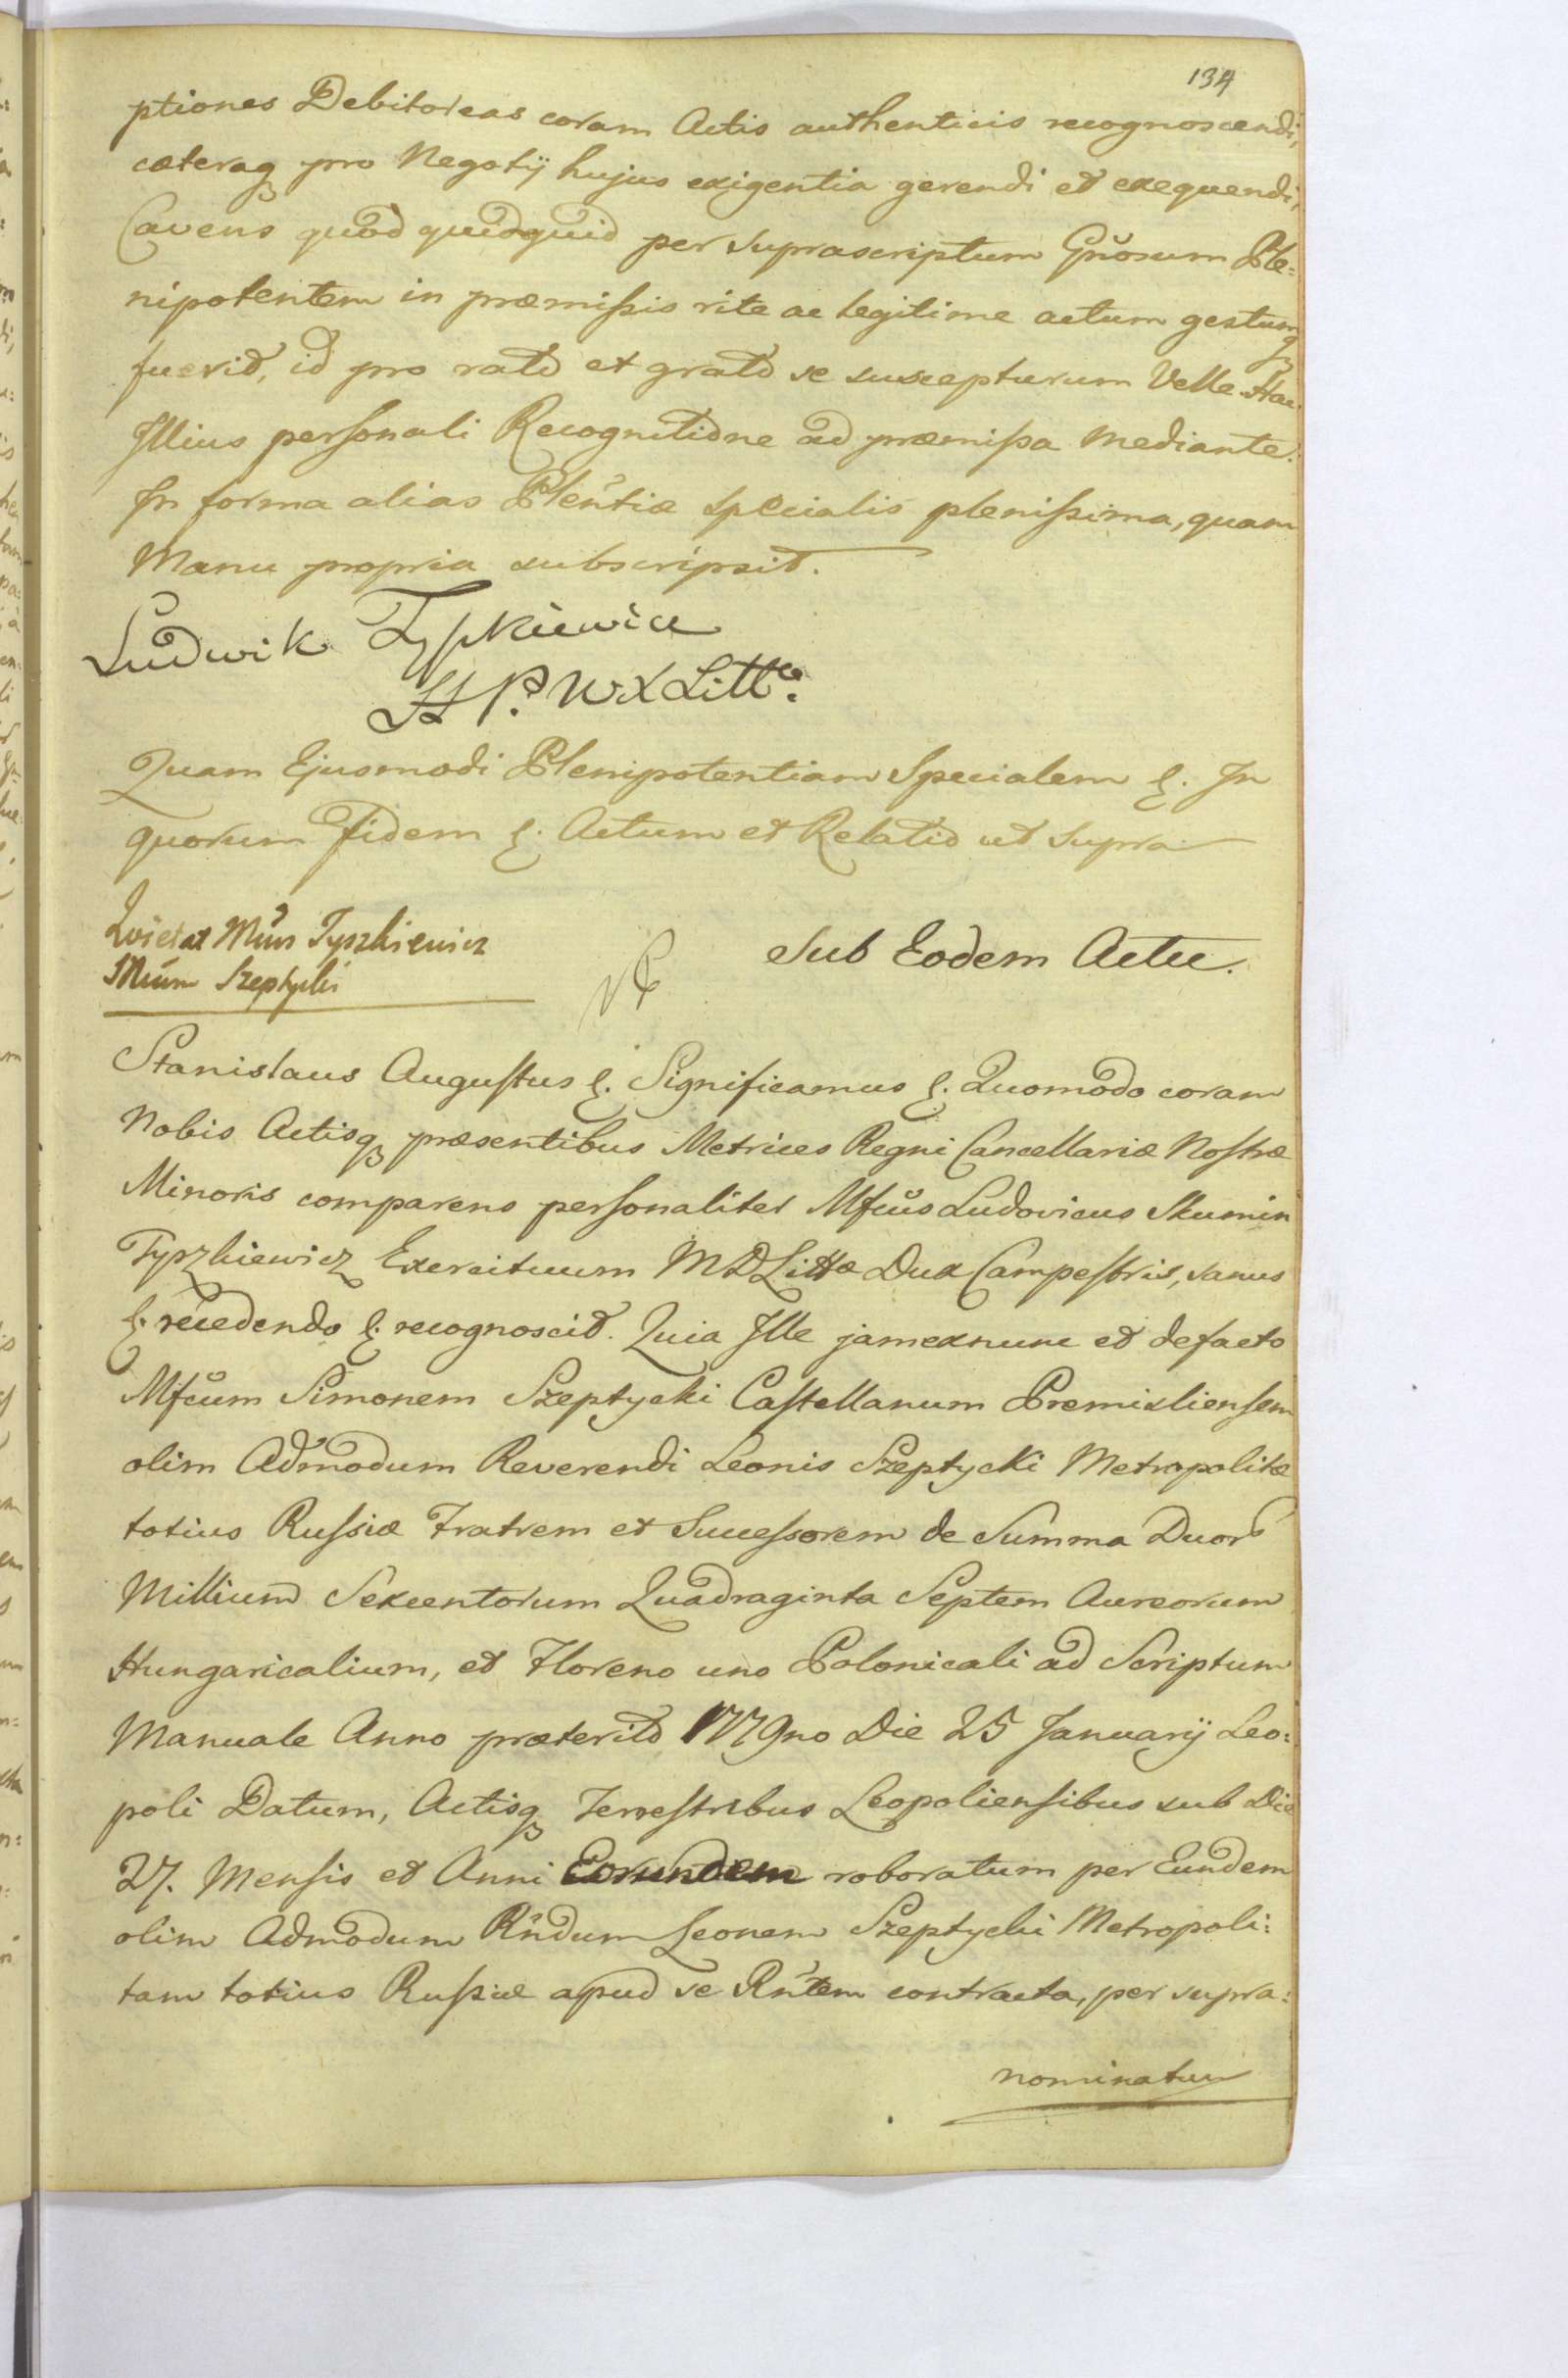 134
ptiones Debitoreas coram Actis authenticis recognoscendi,
cæteraq3 pro Negotÿ hujus exigentia gerendi et exequendi,
Cavens quòd quidquid per suprascriptum Gñosum Ple:
nipotentem in præmißis rite ac legitime actum gestumq3
fuerit, id pro rato et grato se suscepturum Velle. Hac
Illius personali Recognitione ad præmißa mediante.
In forma alias Pleñtiæ specialis plenißima, quam
Manu propria subscripsit.
Ludwik Tyszkiewicz
H P. W X Litt.
Quam Ejusmodi Plenipotentiam Specialem &. In
quorum Fidem &. Actum et Relatio ut supra
Quietat Mfüs Tyszkiewicz
Mfüm Szeptycki
Sub Eodem Actu.
Stanislaus Augustus &. Significamus &. Quomodo coram
Nobis Actisq3 præsentibus Metrices Regni Cancellariæ Nostræ
Minoris comparens personaliter Mfcus Ludovicus Skumin
Tyszkiewicz Exercituum MDLittæ Dux Campestris, sanus
&. recedendo &. recognoscit. Quia Ille jam exnunc et defacto
Mfcum Simonem Szeptycki Castellanum Premisliensem
olim Admodum Reverendi Leonis Szeptycki Metropolitæ
totius Russiæ Fratrem et Successorem de Summa Duor
Millium Sexcentorum Quadraginta Septem Aureorum
Hungaricalium, et Floreno uno Polonicali ad Scriptum
Manuale Anno præterito 1779no Die 25 Januarÿ Leo:
poli Datum, Actisq3 Terrestribus Leopoliensibus sub Die
27. Mensis et Anni Eorundem roboratum per Eundem
olim Admodum Rñdum Leonem Szeptycki Metropoli:
tam totius Rußiæ apud se Rñtem contracta, per supra:
nominatum